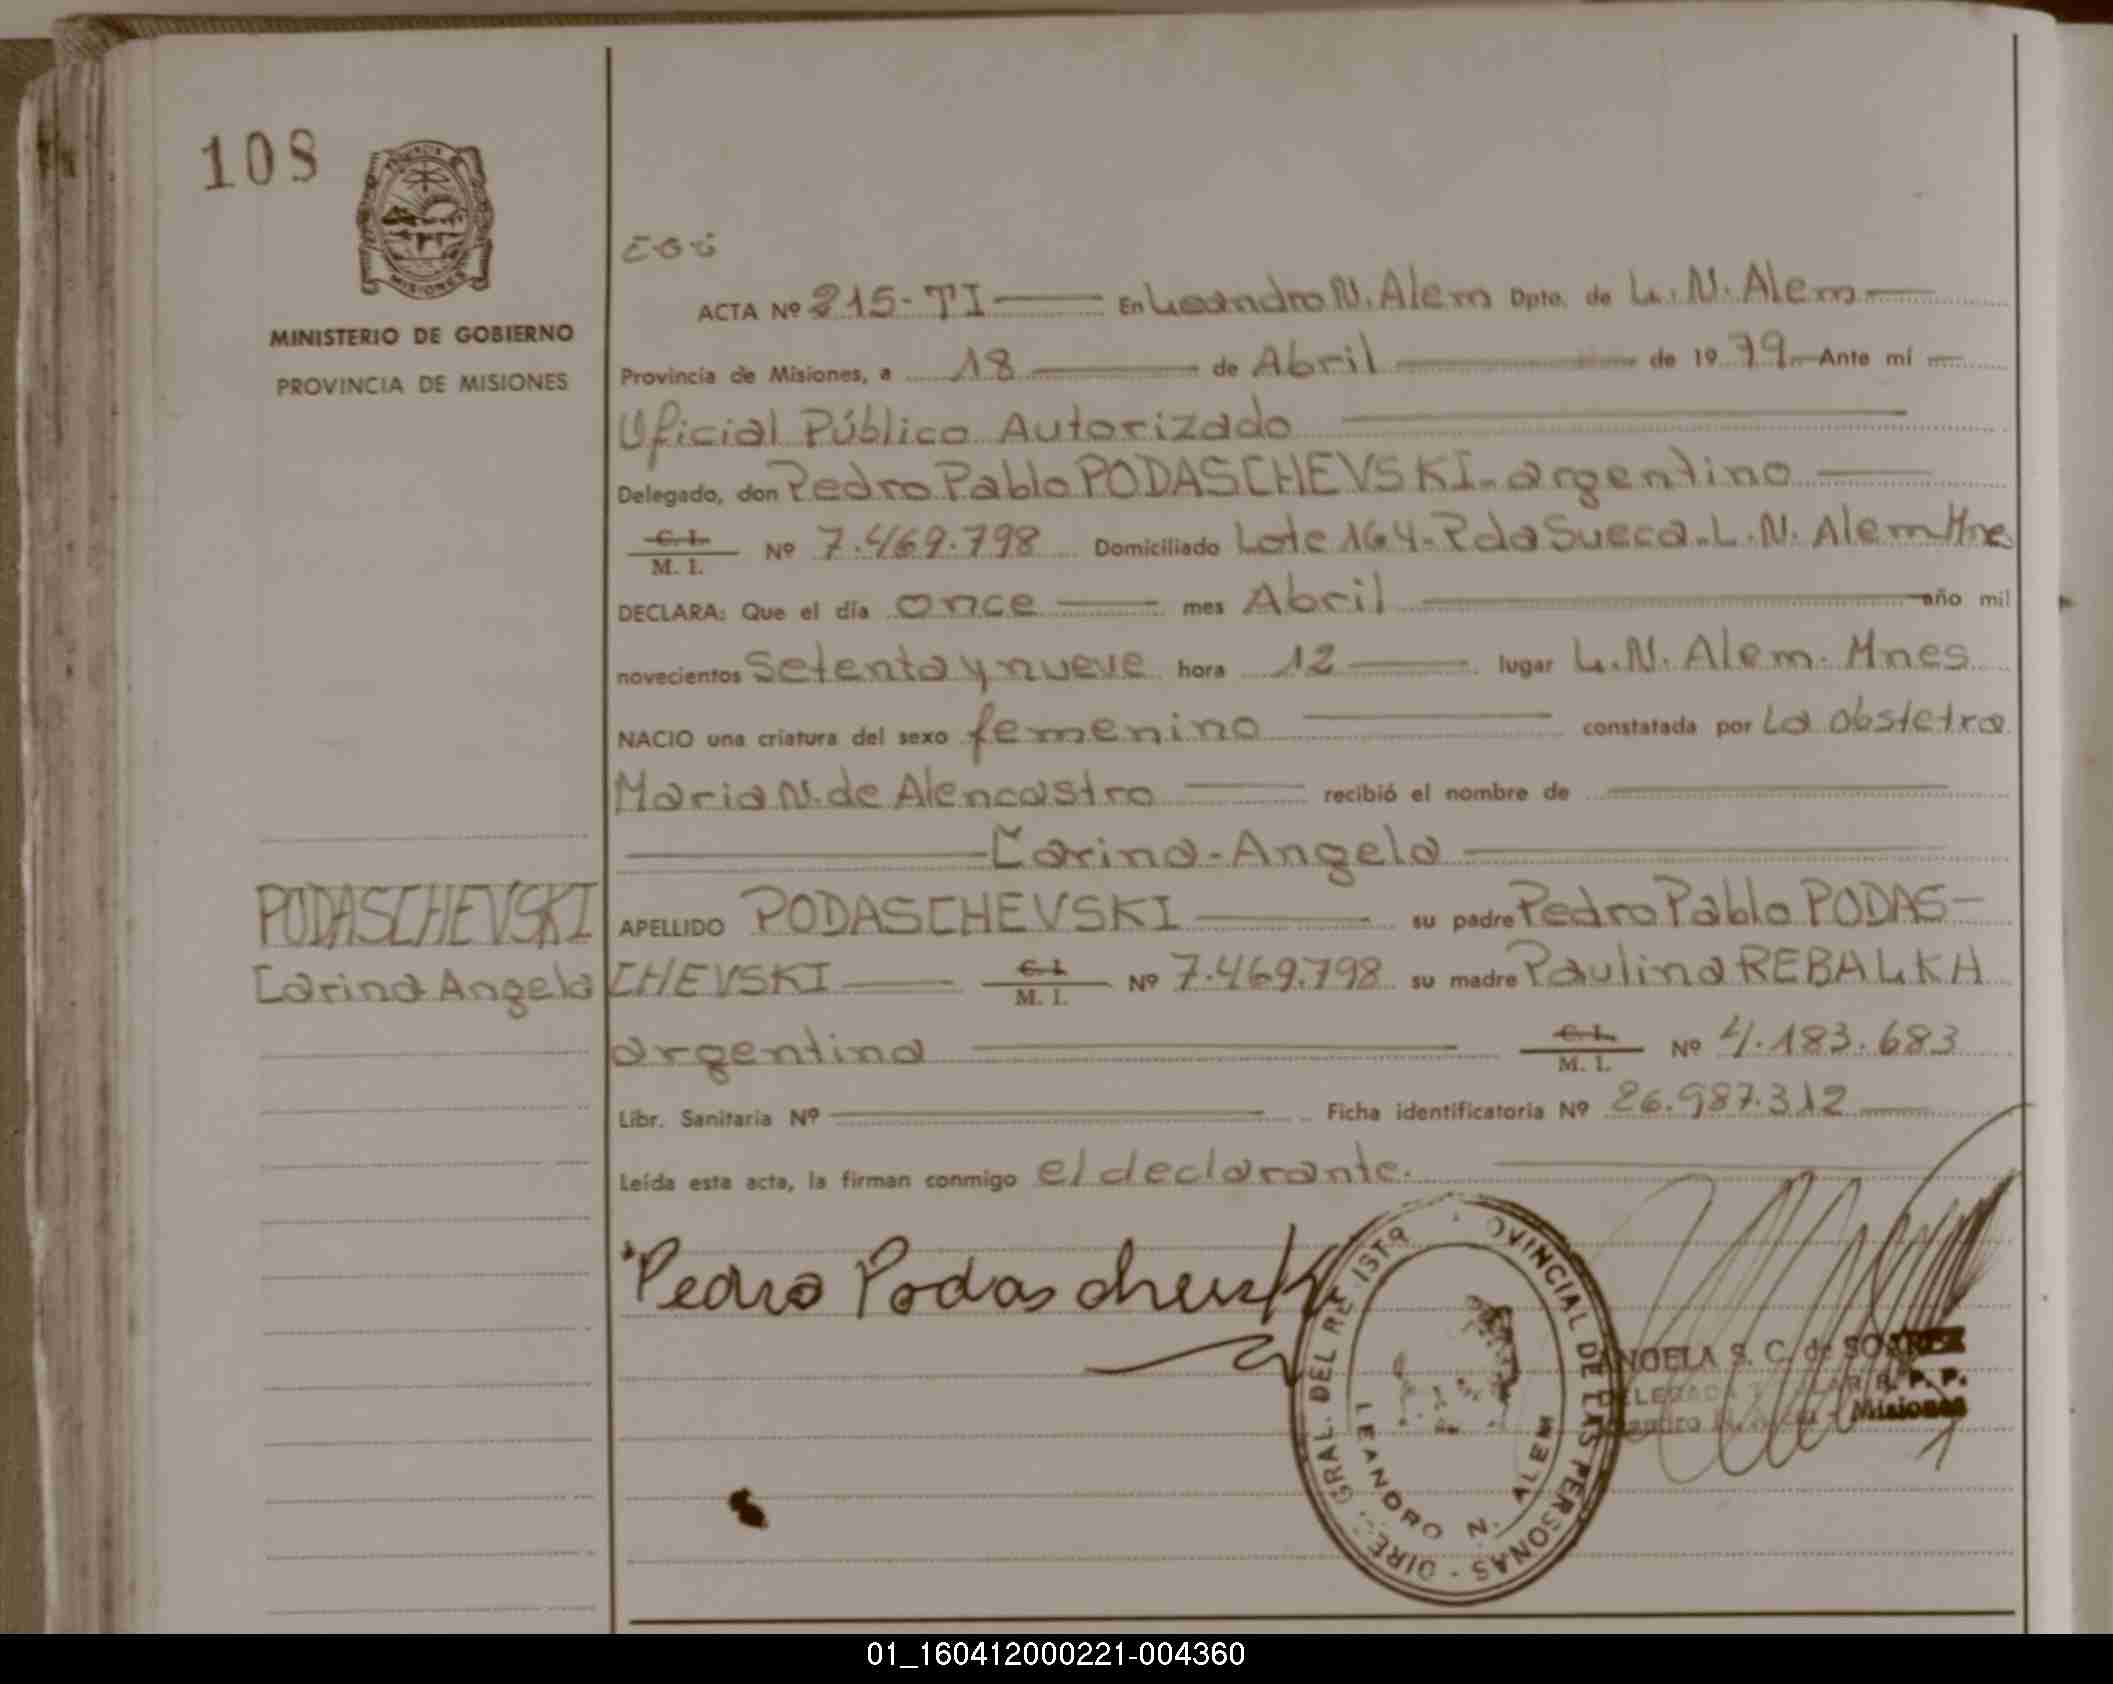 108
MINISTERIO DE GOBIERNO
PROVINCIA DE MISIONES
MISIONES
ACTA Nº 215-TI En Leandro N. Alem Dpto. de L. N. Alem
Provincia de Misiones, a 18 de Abril de 1979. Ante mí
Oficial Público Autorizado
Delegado, don Pedro Pablo PODASCHEVSKI- argentino
C. I.
M. I. Nº 7.469.798 Domiciliado Lote 164- Pda Sueca- L. N. Alem Mne
DECLARA: Que el día once mes Abril año mil
novecientos Setenta y nueve hora 12 lugar L. N. Alem- Mnes
NACIO una criatura del sexo femenino constatada por La obstetra
Maria N. de Alencastro recibió el nombre de
Carina-Angela
PODASCHEVSKI
Carina Angela
APELLIDO PODASCHEVSKI su padre Pedro Pablo PODAS-
CHEVSKI C. I.
M. I. Nº 7.469.798 su madre Paulina REBALKA
argentina C. I.
M. I. Nº 4.183.683
Libr. Sanitaria Nº Ficha identificatoria Nº 26.987.312
Leída esta acta, la firman conmigo el declarante.
Pedro Podaschevski
GRAL. DEL PROVINCIAL DE LAS PERSONAS - DIRE
LEANDRO N. ALEM
ANGELA S. C. de SOAREZ
P. P.
Misiones
01_160412000221-004360